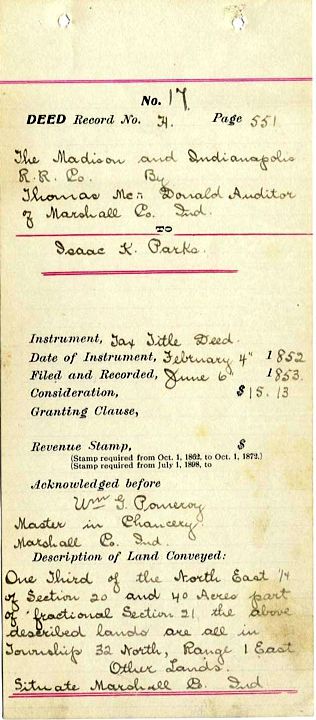 No. 17
DEED Record No. H. Page 551
The Madison and Indianapolis
R.R. Co. By
Thomas Mc= Donald Auditor
of Marshall Co. Ind.
TO
Isaac K. Parks.
Instrument, Tax Title Deed.
Date of Instrument, February 4" 1852
Filed and Recorded, June 6" 1853.
Consideration, $15.13
Granting Clause,
Revenue Stamp, $
(Stamp required from Oct. 1, 1862, to Oct. 1, 1872.)
(Stamp required from July 1, 1898, to
Acknowledged before
Wm G. Pomeroy
Master in Chancery
Marshall Co. Ind.
Description of Land Conveyed:
One Third of the North East 1/4
of Section 20 and 40 Acres part
of fractional Section 21, the above
described lands are all in
Township 32 North, Range 1 East
Other Lands.
Situate Marshall Co. Ind